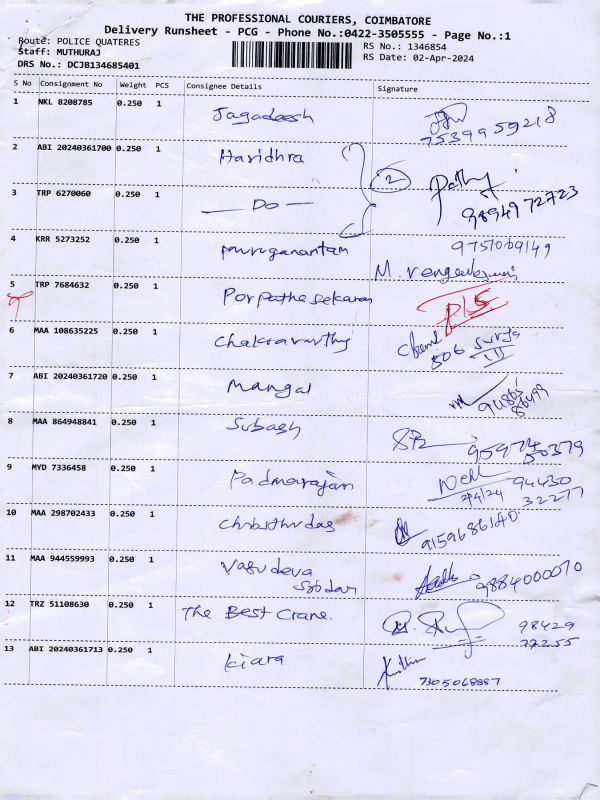 THE PROFESSIONAL COURIERS, COIMBATORE
Delivery Runsheet - PCG - Phone No.:0422-3505555 - Page No.:1
Route: POLICE QUATERES
Staff: MUTHURAJ
DRS No.: DCJB134685401
RS No.: 1346854
RS Date: 02-Apr-2024
S No Consignment No Weight PCS Consignee Details Signature
1 NKL 8208785 0.250 1 Jagadeesh 7539959218
2 ABI 20240361700 0.250 1 Haridhra 2
3 TRP 6270060 0.250 1 — Do — 9894972723
4 KRR 5273252 0.250 1 muruganantam 9751069149
M.
5 TRP 7684632 0.250 1 Porpathasekaran
6 MAA 108635225 0.250 1 Chakravarthy
506 Surya
III
7 ABI 20240361720 0.250 1 Mangal
8 MAA 864948841 0.250 1 Subash
9 MYD 7336458 0.250 1 Padmarajan 94430
2/4/24 32277
10 MAA 298702433 0.250 1
11 MAA 944559993 0.250 1 Vasudeva 9884000070
12 TRZ 51108630 0.250 1 The Best Crane. 98429
77255
13 ABI 20240361713 0.250 1 Kiara
7305068887